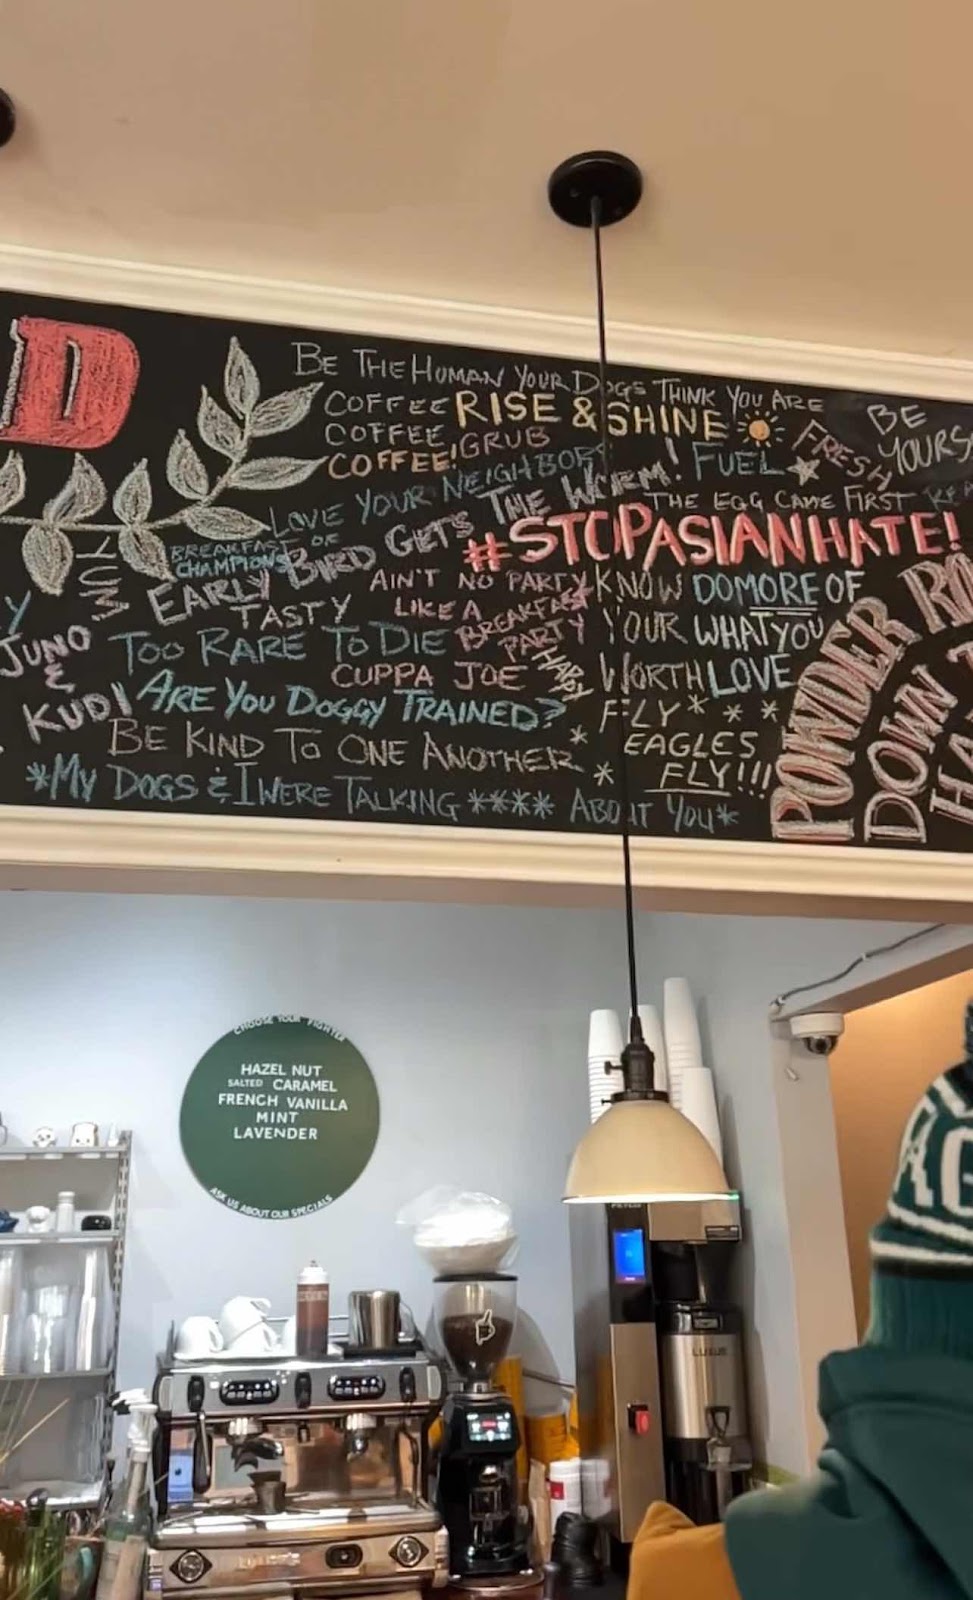 D
BE THE HUMAN YOUR DOGS THINK YOU ARE
COFFEE RISE & SHINE
COFFEE GRUB
COFFEE!
BE
YOURS
FRESH
LOVE YOUR NEIGHBOR
FUEL
EARLY BIRD GETS THE WORM!
THE EGG CAME FIRST
BREAKFAST OF
CHAMPIONS
#STOPASIANHATE!
YUM
TASTY
AIN'T NO PARTY
LIKE A
BREAKFAST
PARTY
KNOW
YOUR
WORTH
DO MORE OF
WHAT YOU
LOVE
Y
JUNO
&
KUDI
TOO RARE TO DIE
CUPPA JOE
HAPPY
ARE YOU DOGGY TRAINED?
FLY* * *
* EAGLES
* FLY!!!
BE KIND TO ONE ANOTHER
*MY DOGS & I WERE TALKING **** ABOUT YOU*
POWDER RO
DOWN T
HA
CHOOSE YOUR FIGHTER
HAZEL NUT
SALTED CARAMEL
FRENCH VANILLA
MINT
LAVENDER
ASK US ABOUT OUR SPECIALS
FETCO
LUXUS
AG